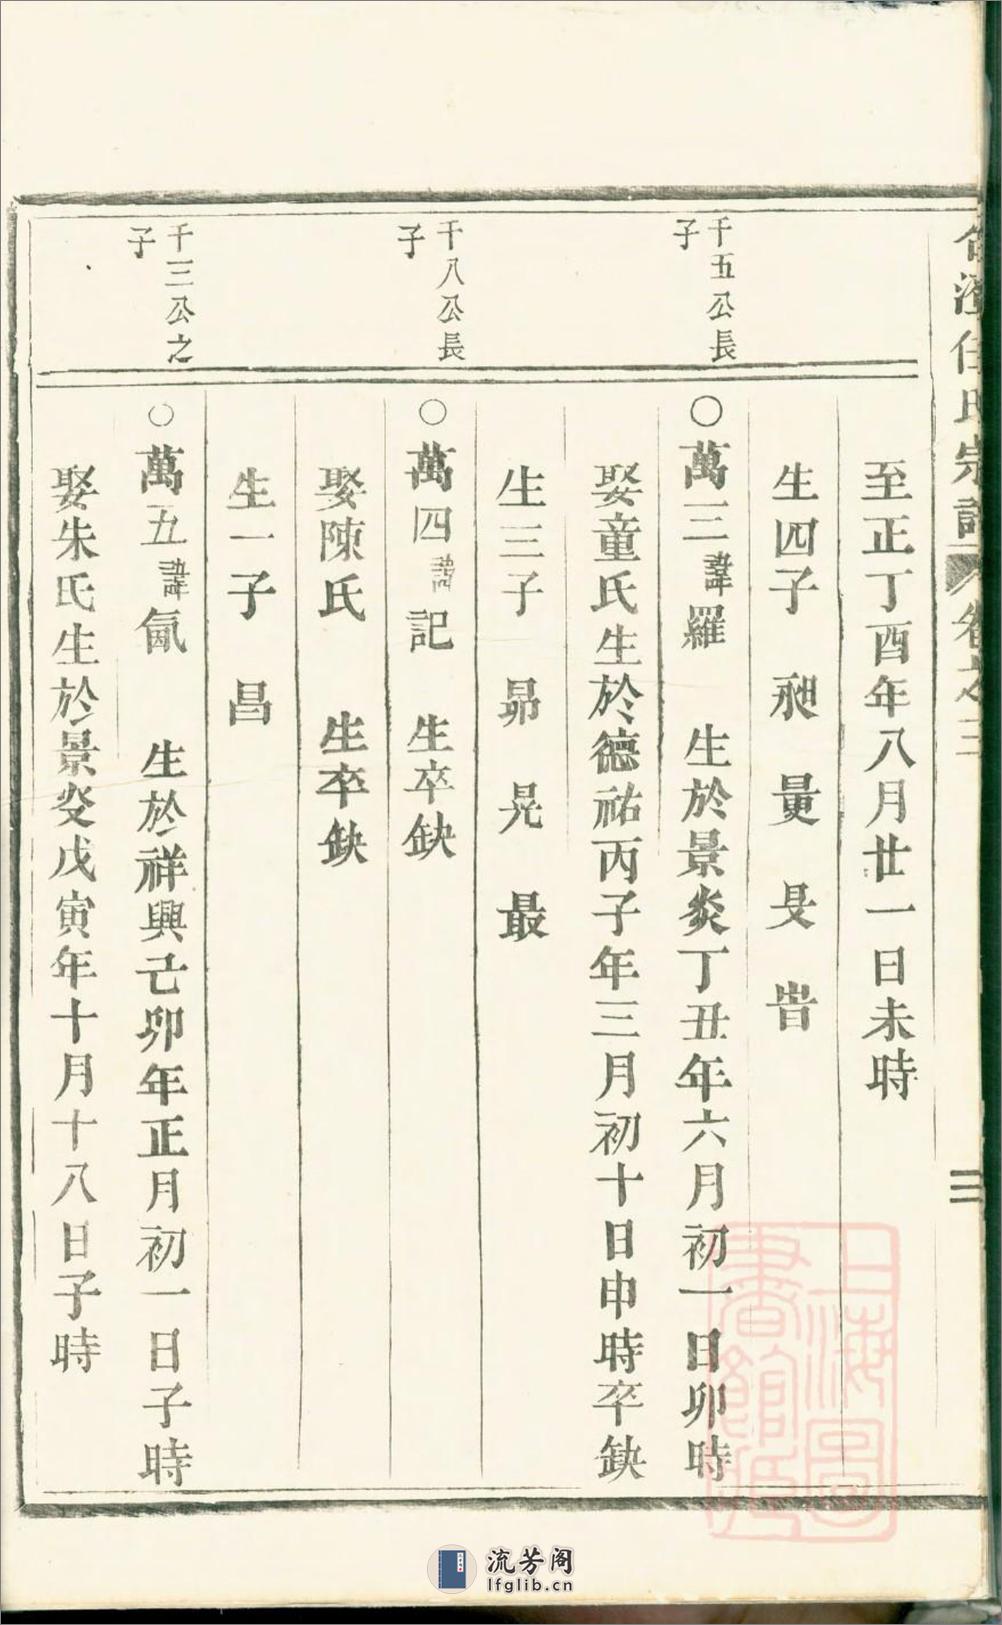 任氏宗譜 卷之三
三
至正丁酉年八月廿一日未時
生四子 昶 量 旻 旹
千五公長
子
○萬三諱羅 生於景炎丁丑年六月初一日卯時
娶童氏生於德祐丙子年三月初十日申時卒缺
生三子 昴 晃 最
千八公長
子
○萬四諱記 生卒缺
娶陳氏 生卒缺
生一子 昌
千三公之
子
○萬五諱氤 生於祥興己卯年正月初一日子時
娶朱氏生於景炎戊寅年十月十八日子時
上海圖
書館藏
流芳阁
lfglib.cn